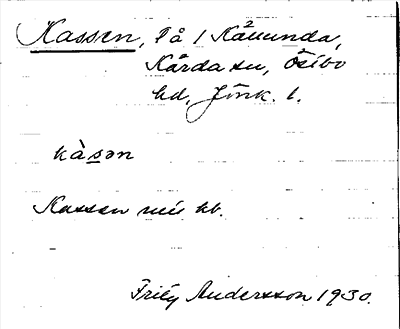 Kassen, på 1 Kåvunda,
Kärda sn, Östbo
hd, Jönk. l.
kàsən
Kassen nu kb.
Fritz Andersson 1930.